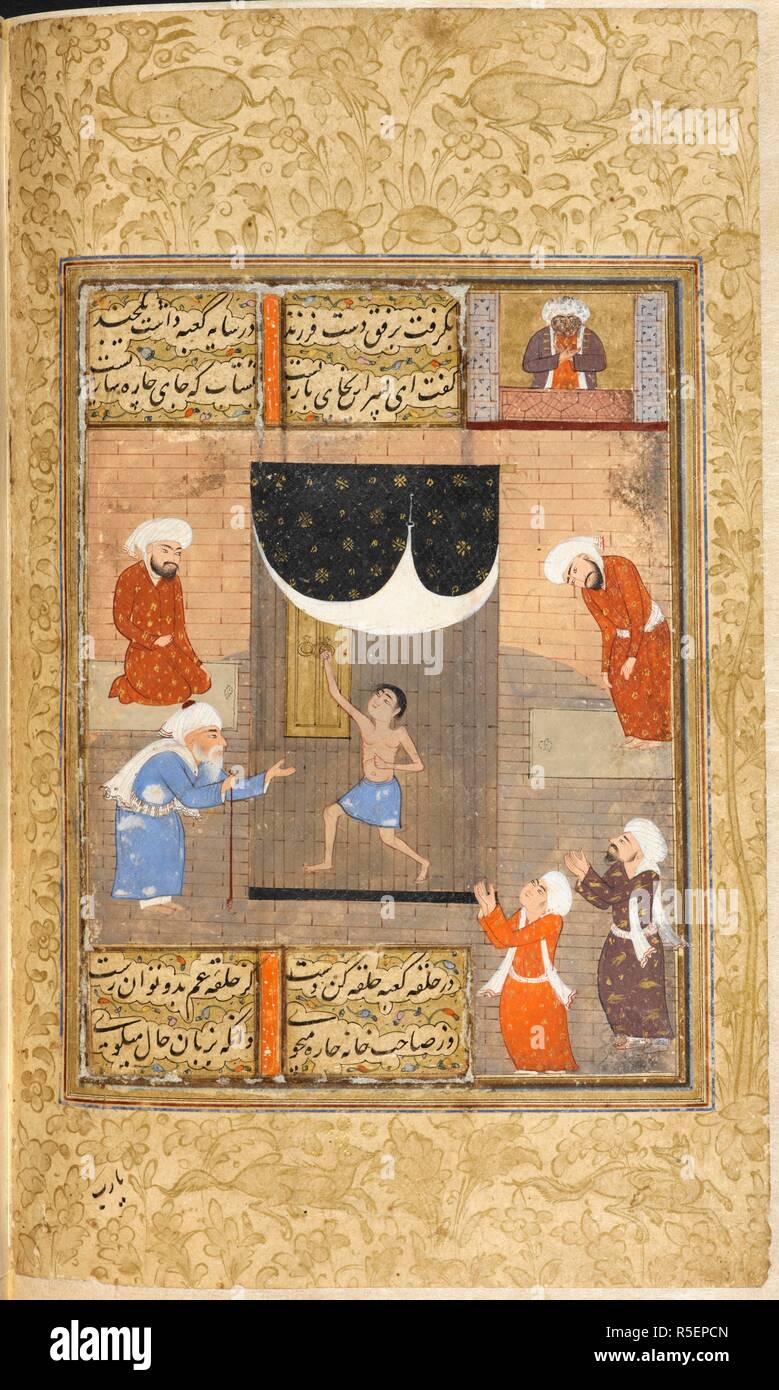 بگرفت برفق دست فرزند در سایه کعبه داشت یکچند
گفت ای پسر این نجای بازیست بشتاب که جای چاره سازیست
در حلقه کعبه حلقه کن دست کز حلقه غم بدو توان رست
وز صاحب خانه چاره میجوی وانگه بزبان حال میگوی
یارب
alamy stock photo
alamy
a
alamy
Image ID: R5EPCN
www.alamy.com